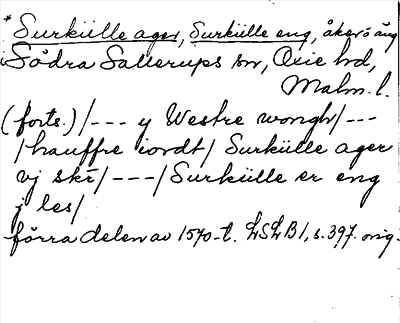 * Surkülle ager, Surkülle eng, åker o äng
Södra Sallerups sn, Oxie hd,
Malm. l.
(forts.) /--- y Westre wongh/ ---
/hauffre iordt/ Surkülle ager
vj skr̄/ ---/ Surkülle er eng
j les/
förra delen av 1570-t. LSLB 1, s. 397. orig.